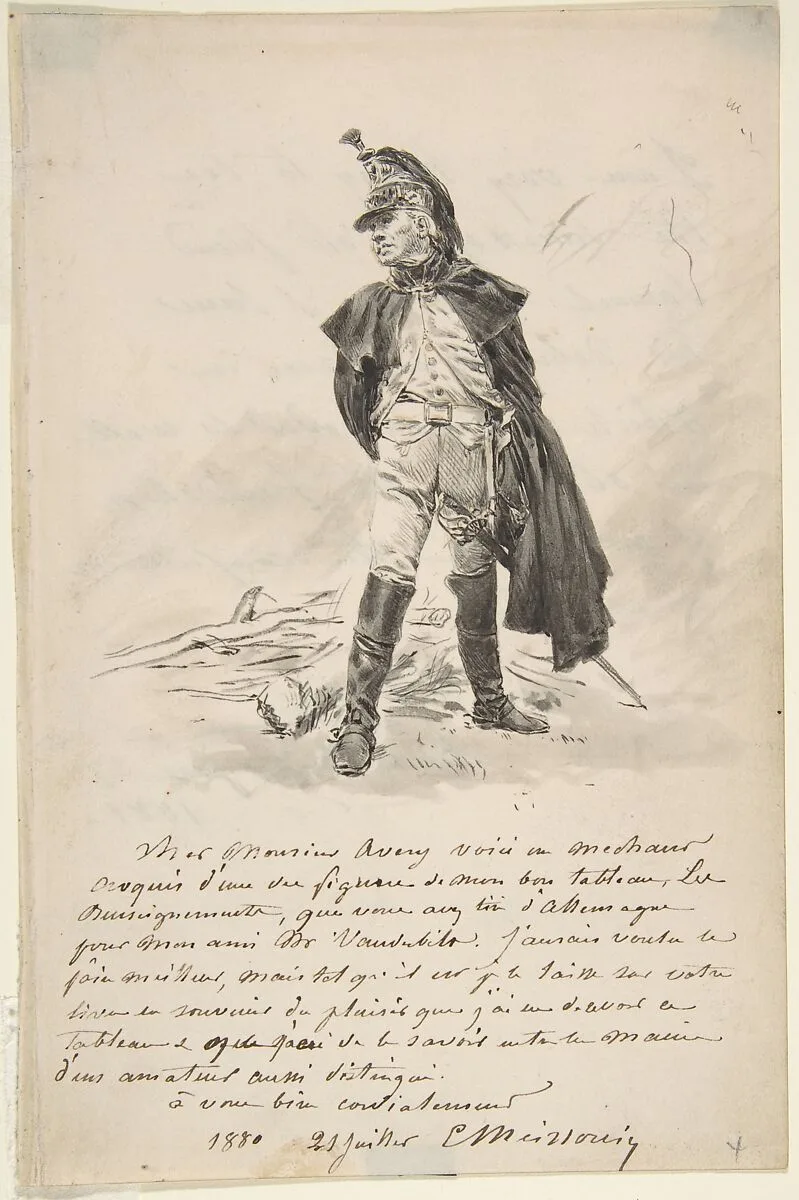 Cher Monsieur Avery voici un mechant
croquis d'une des figures de mon bon tableau, Les
Renseignements, que vous avez tiré d'Allemagne
pour mon ami Mr Vanderbilt. J'aurais voulu le
faire meilleur, mais tel qu'il est je le laisse sur votre
livre en souvenir du plaisir que j'ai eu de revoir ce
tableau & que j'ai de le savoir entre les mains
d'un amateur aussi distingué.
à vous bien cordialement
1880 21 Juillet EMeissonier